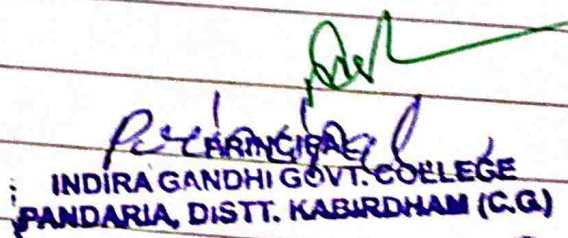 Principal
PRINCIPAL
INDIRA GANDHI GOVT. COLLEGE
PANDARIA, DISTT. KABIRDHAM (C.G.)